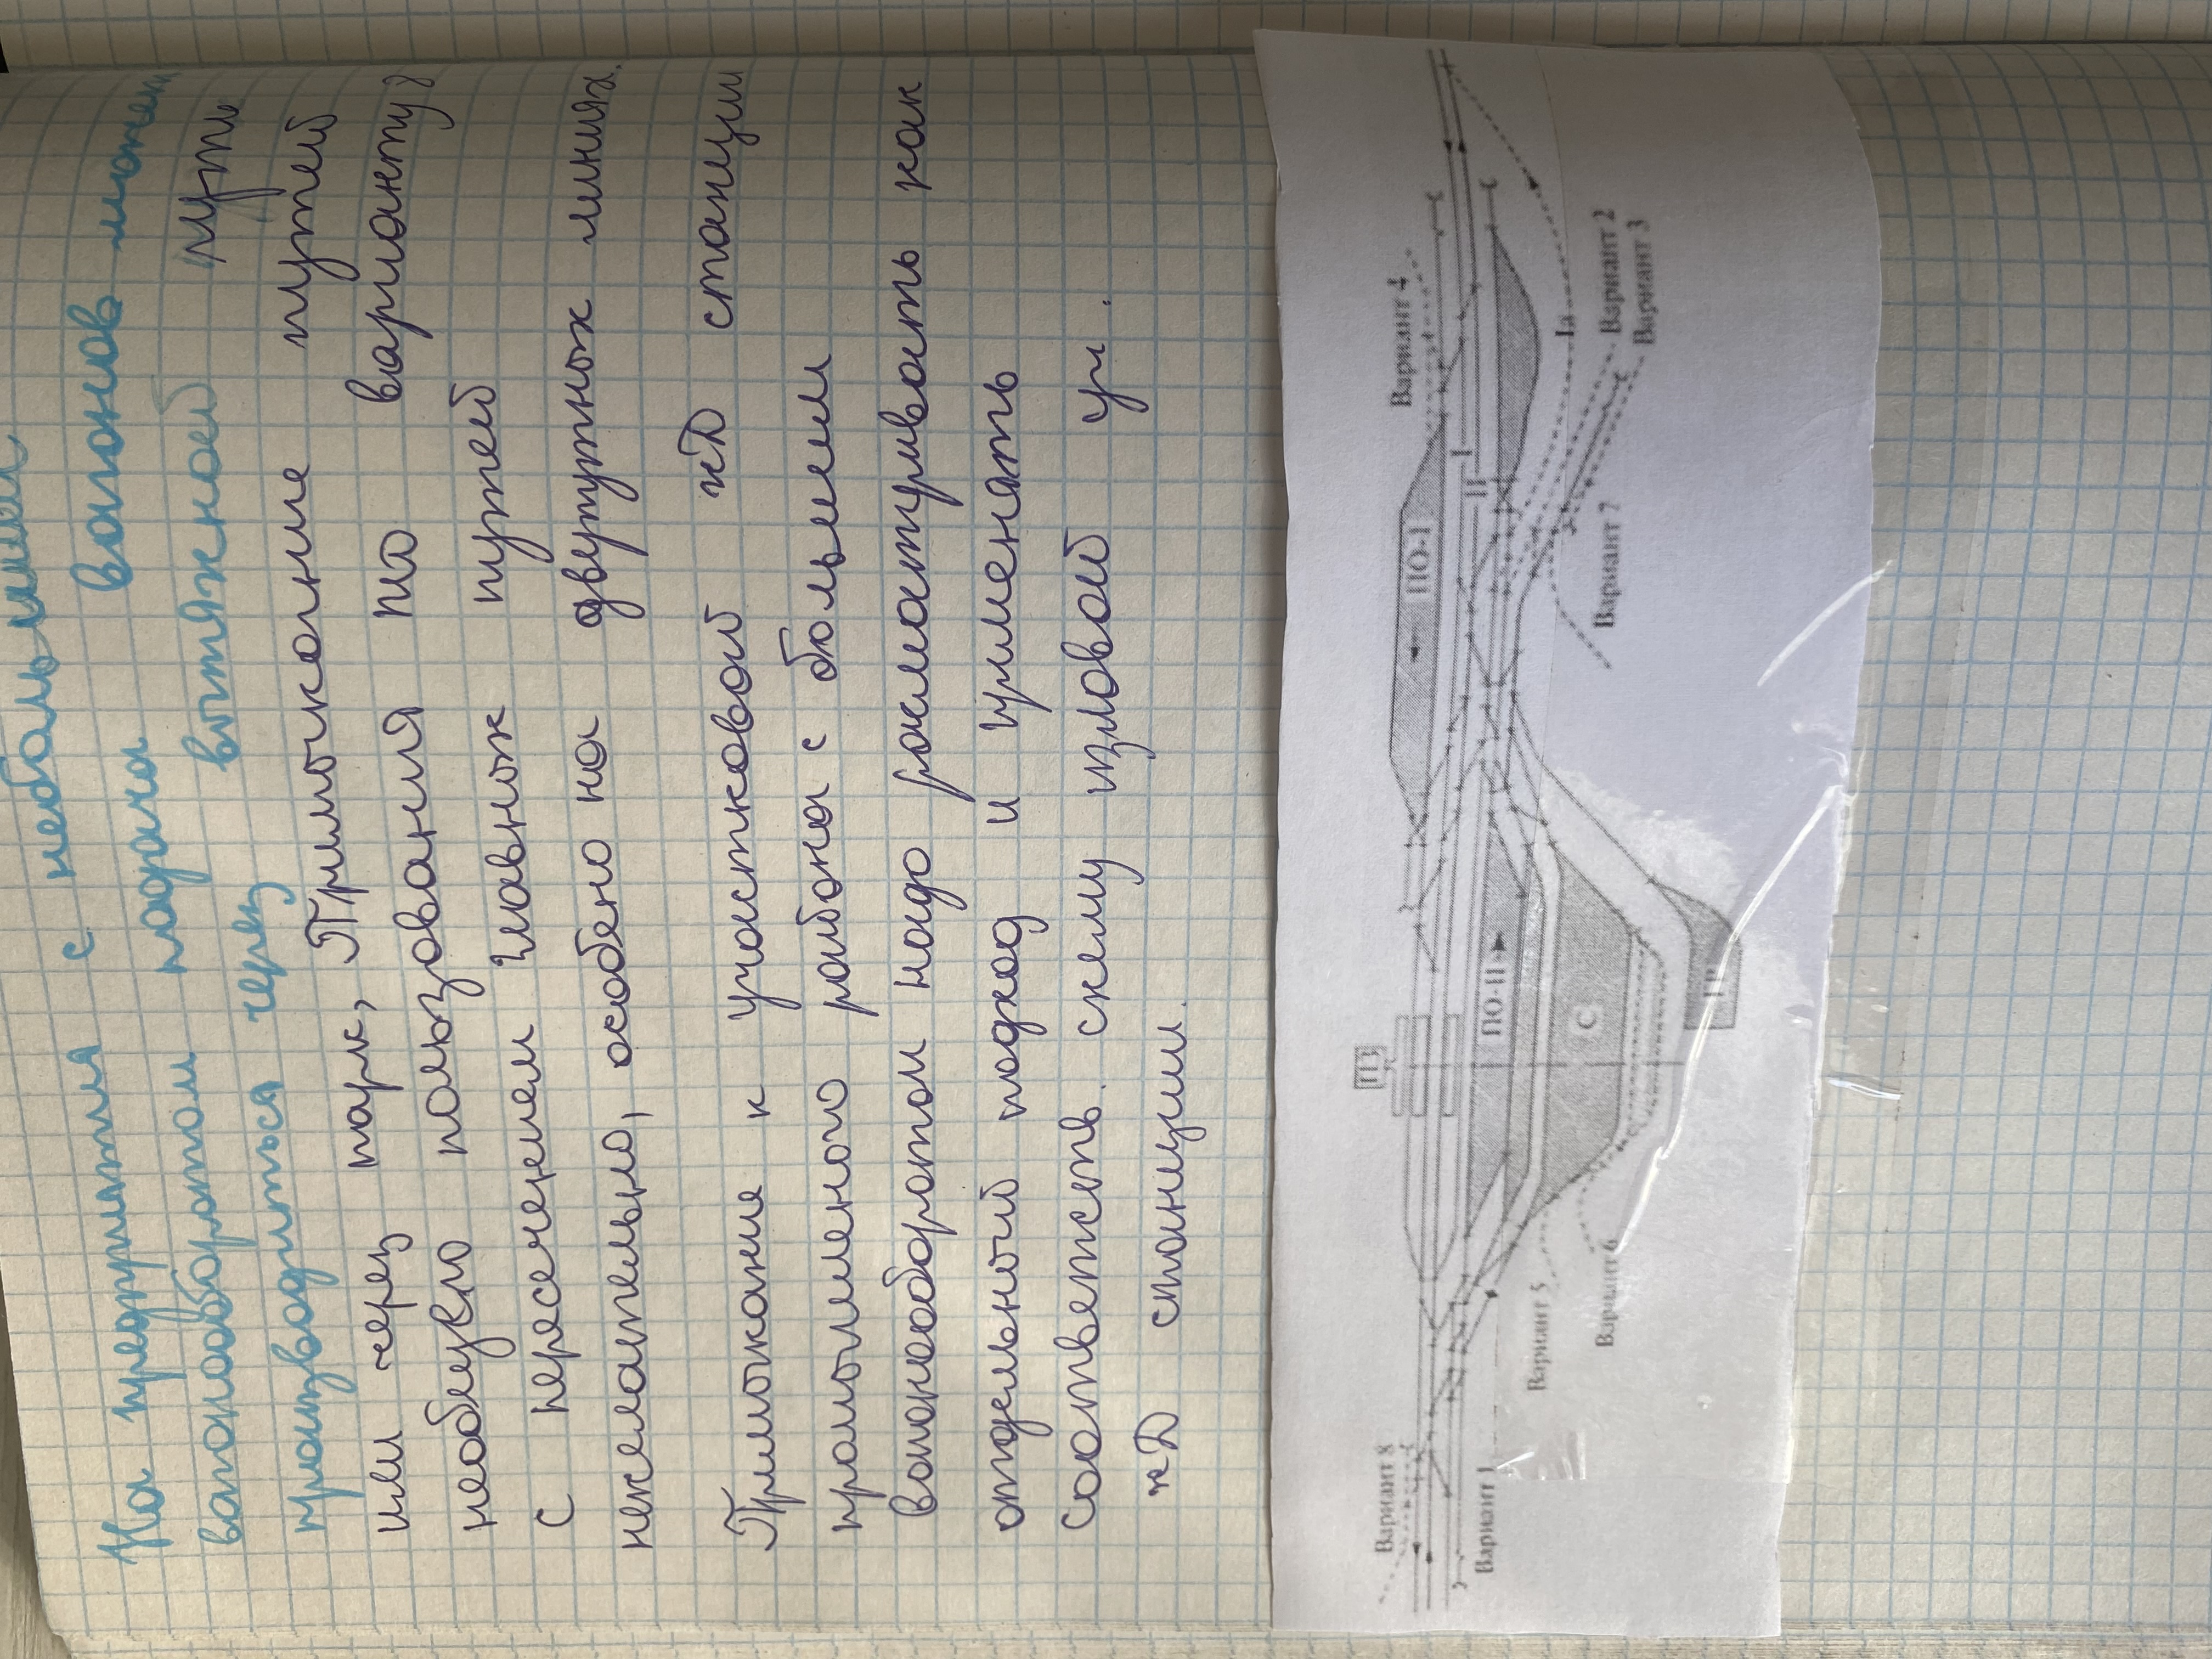 На предприятия с небольшим
вагонооборотом подача вагонов может
производиться через вытяжной пути
или через парк, Примыкание путей
необщего пользования по варианту 8
с пересечением главных путей
нежелательно, особено на двупутных линиях.
Примыкание к участковой жД станции
промышленого района с большим
вагонооборотом надо рассматривать как
отдельной подход и применять
соответств. схему узловой уч.
жД станции.
Вариант 8
Вариант 1
ПЗ
Вариант 4
ПО-1
I
II
ПО-II
С
ГР
Iа
Вариант 2
Вариант 3
Вариант 7
Вариант 5
Вариант 6